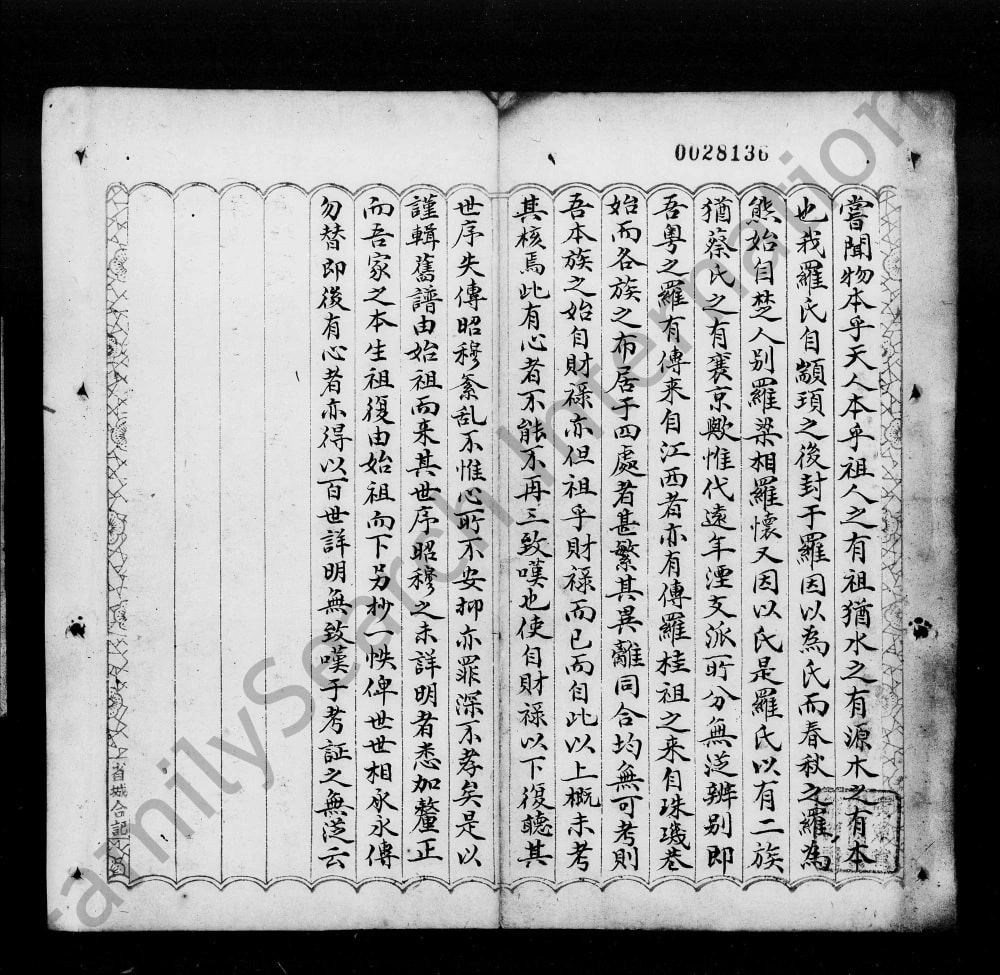 0028136
嘗聞物本乎天人本乎祖人之有祖猶水之有源木之有本
也我羅氏自顓頊之後封于羅因以為氏而春秋之羅為
熊始自楚人别羅梁相羅懷又因以氏是羅氏以有二族
猶蔡氏之有襄京歟惟代遠年湮支派所分無从辨别即
吾粤之羅有傳来自江西者亦有傳羅桂祖之来自珠璣巷
始而各族之布居于四處者甚繁其異離同合均無可考則
吾本族之始自財祿亦但祖乎財祿而已而自此以上概未考
其核焉此有心者不能不再三致嘆也使自財祿以下復聽其
世序失傳昭穆紊乱不惟心所不安抑亦罪深不孝矣是以
謹輯舊譜由始祖而来其世序昭穆之未詳明者悉加釐正
而吾家之本生祖復由始祖而下另抄一帙俾世世相承永傳
勿替即後有心者亦得以百世詳明無致嘆于考証之無从云
省城合記
FamilySearch International